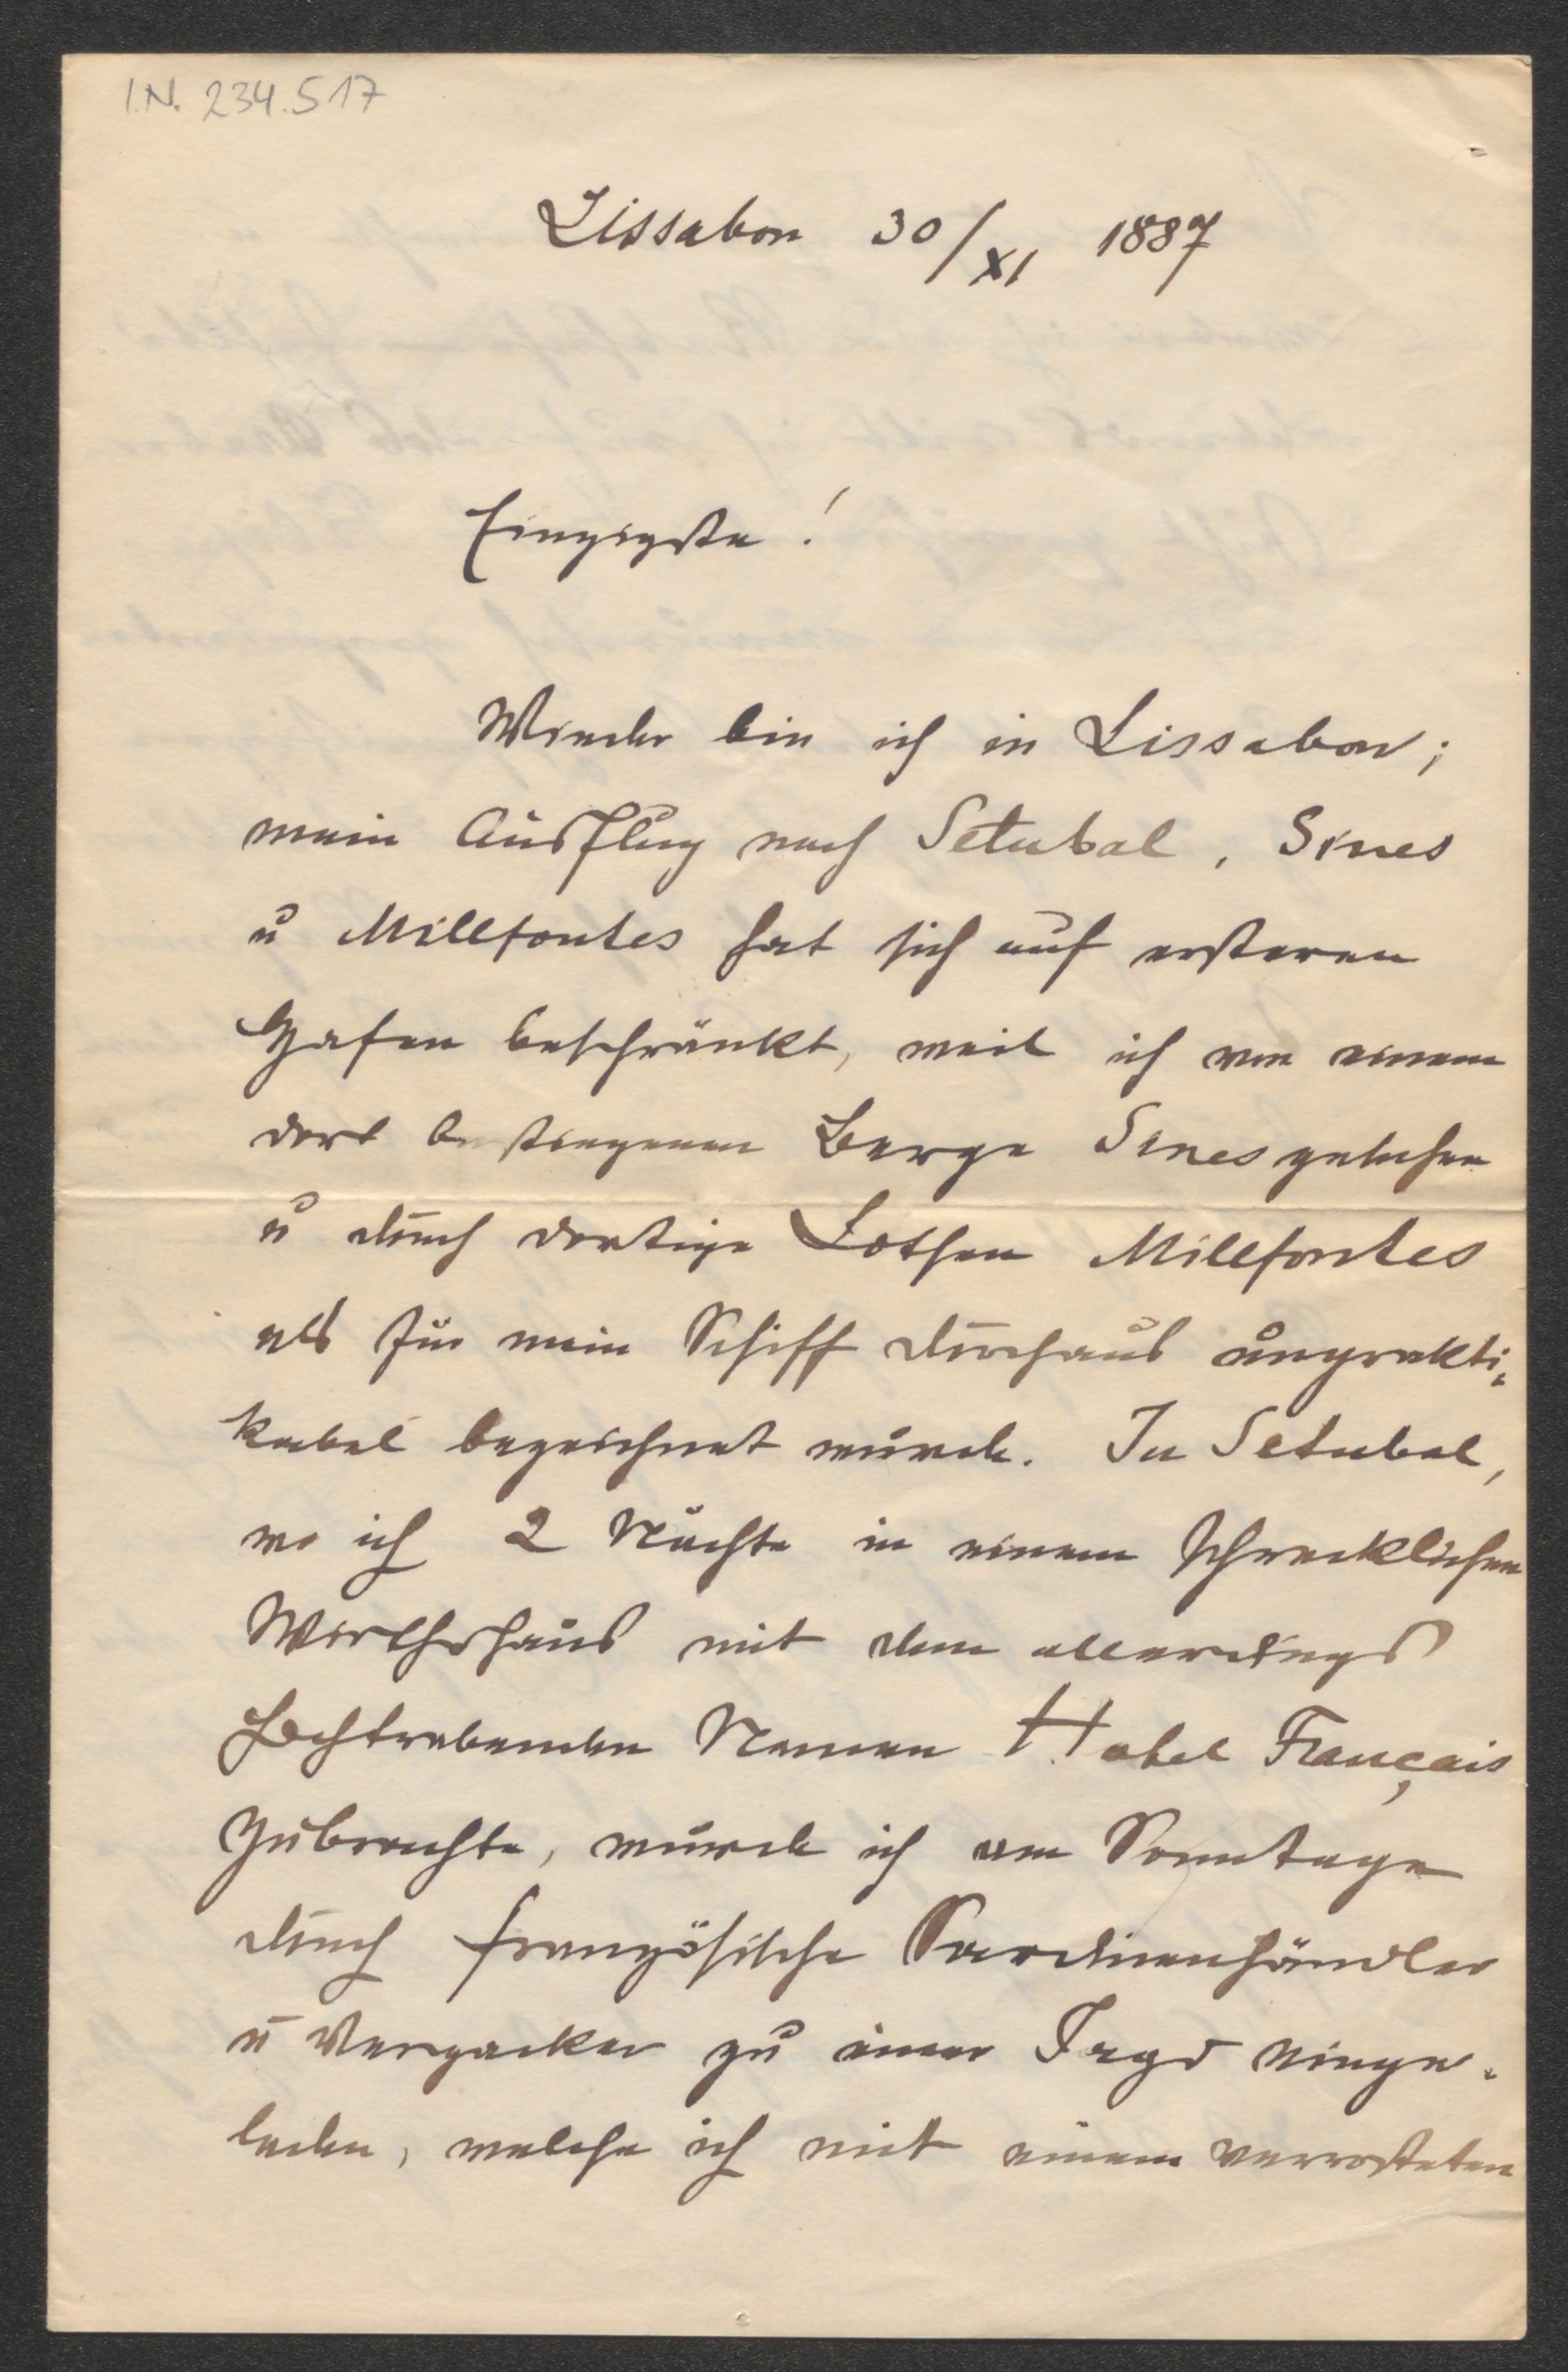 I.N. 234.517
Lissabon 30/XI 1887
Einzigste!
Wieder bin ich in Lissabon;
mein Ausflug nach Setubal, Sines
u Millfontes hat sich auf ersteren
Hafen beschränkt, weil ich von einem
dort bestiegenen Berge Sines gesehen
u durch dortige Lothsen Millfontes
als für mein Schiff durchaus unprakti-
kabel bezeichnet wurde. In Setubal,
wo ich 2 Nächte in einem schrecklichen
Wirthshaus mit dem allerdings
hochtrabenden Namen Hotel Français
zubrachte, wurde ich am Sonntage
durch französische Sardinenhändler
u Verpacker zu einer Jagd einge-
laden, welche ich mit einem verrosteten